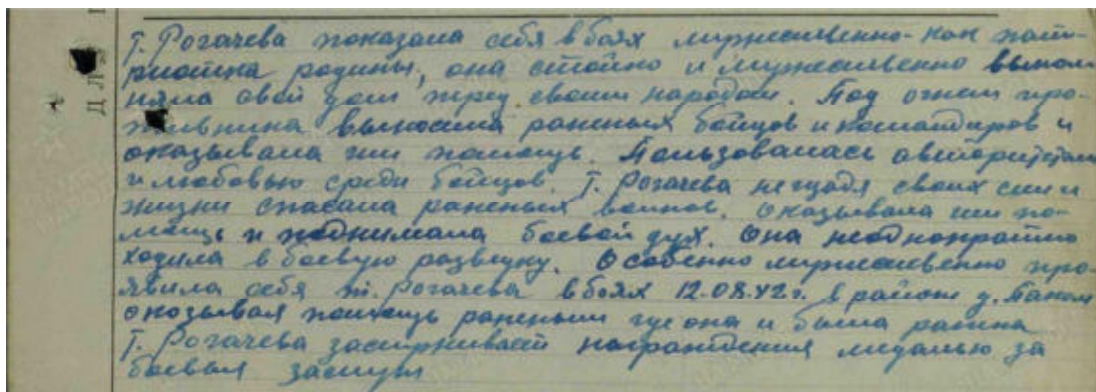 Т. Рогачева показала себя в боях мужественно - как пат-
риотка родины, она стойко и мужественно выпол
няла свой долг перед своим народом. Под огнем про-
тивника выносила раненых бойцов и командиров и
оказывала им помощь. Пользовалась авторитетом
и любовью среди бойцов. Т. Рогачева не щадя своих сил и
жизни спасала раненых воинов. Оказывала им по-
мощь и поднимала боевой дух. Она неоднократно
ходила в боевую разведку. Особенно мужественно про-
явила себя т. Рогачева в боях 12.08.42г. в районе д.
оказывая помощь раненым где она и была ранена
Т. Рогачева заслуживает награждения медалью за
боевые заслуги